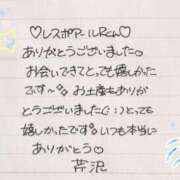 ♡レスポアールRさん♡
ありがとうございました♡
お会いできてとっても嬉しかった
です〜 お土産もありが
とうございました(: :)とっても
嬉しかったです。いつも本当に
ありがとう♡
芹沢